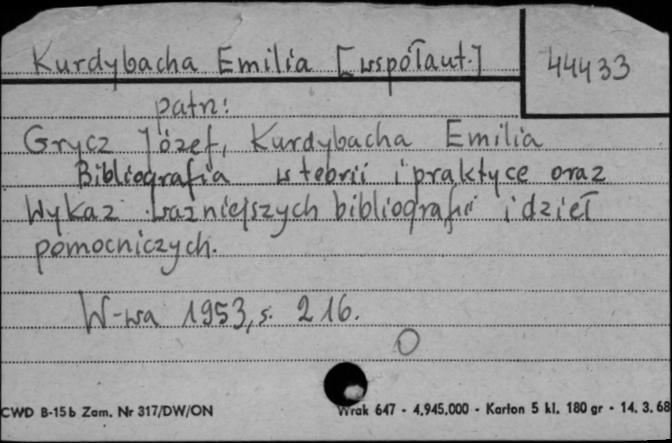 Kurdybacha Emilia [współaut.] 44433
patrz:
Grycz Józef, Kurdybacha Emilia
Bibliografia w teorii i praktyce oraz
Wykaz ważniejszych bibliografii i dzieł
pomocniczych.
W-wa 1953, s. 216.
CWD B-15b Zam. Nr 317/DW/ON Wrak 647 - 4.945.000 - Karton 5 kl. 180 gr - 14. 3. 68